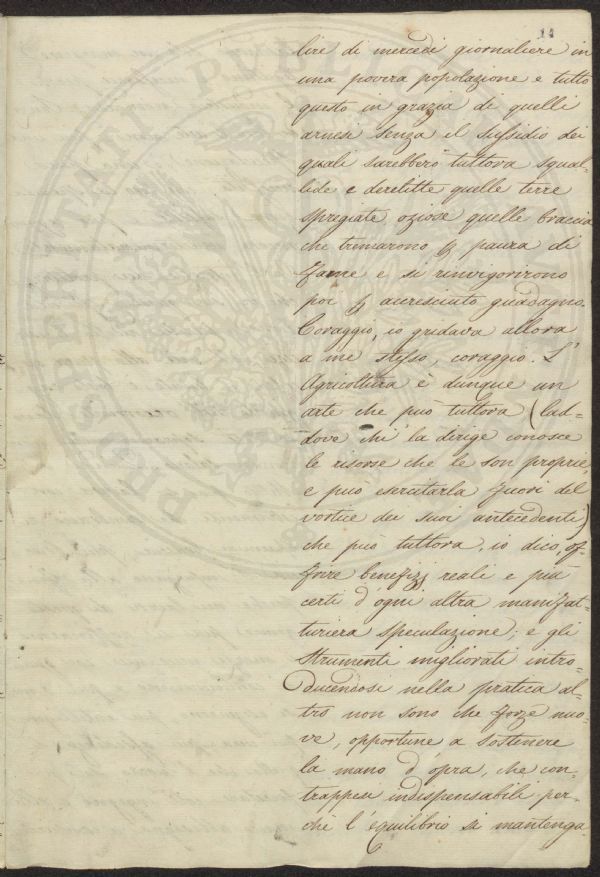 14
lire di mercedi giornaliere in
una povera popolazione e tutto
questo in grazia di quelli
arnesi senza il sussidio dei
quali sarebbero tuttora squal-
lide e derelitte quelle terre
spregiate oziose quelle braccia
che tremarono p paura di
fame e si rinvigorirono
poi p accresciuto guadagno.
Coraggio, io gridava allora
a me stesso, coraggio. L'
Agricoltura è dunque un
arte che può tuttora (lad-
dove chi la dirige conosce
le risorse che le son proprie
e può esercitarla fuori del
vortice dei suoi antecedenti)
che può tuttora, io dico, of-
frire benefizj reali e più
certi d'ogni altra manifat-
turiera speculazione; e gli
strumenti migliorati intro-
ducendosi nella pratica al-
tro non sono che forze nuo-
ve, opportune a sostenere
la mano d'opra, che con-
trappesi indispensabili per-
chè l'equilibrio si mantenga
PROSPERITATI PUBLICAE